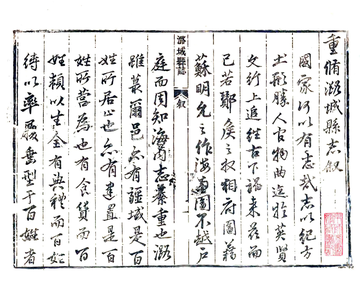 重脩潞城縣志叙
國家何以有志哉志以紀方
土形勝人古物曲迄於英賢
文行上追往古下詔來茲而
已若鄼侯之收相府圖籍
蘇明允之作海圖不越戶
潞城縣誌
叙
庭而周知海內志綦重也潞
雖蕞爾邑亦有疆域是百
姓所居止也亦有建置是百
姓所營為也有食貨而百
姓賴以生全有典禮而百姓
待以率履垂型于百姓者